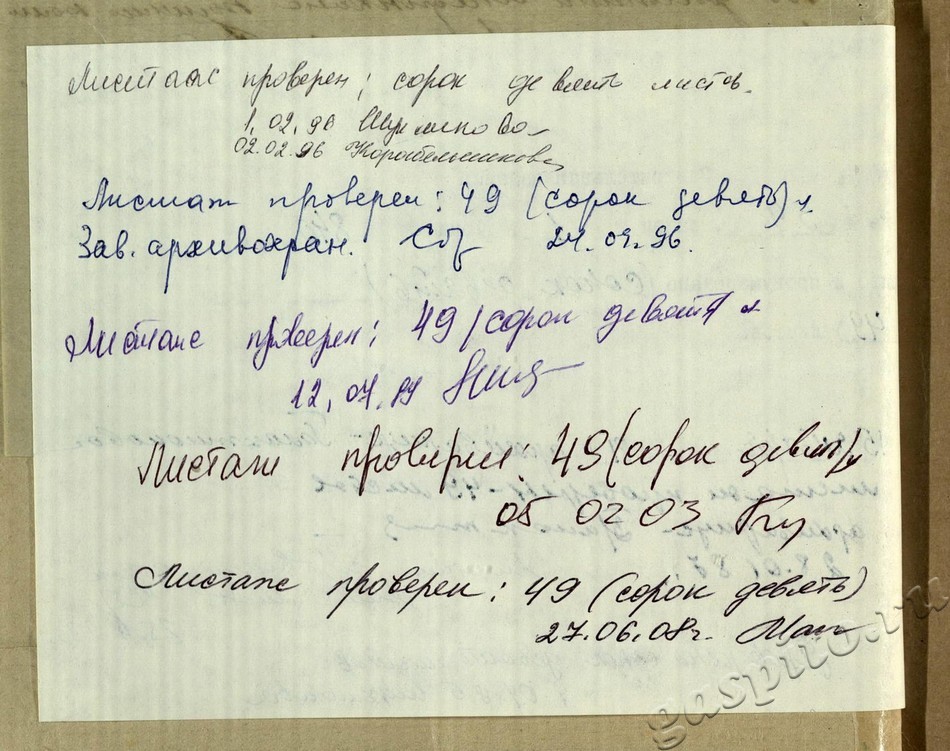 Листаж проверен; сорок девять листов.
1.02.96
02.02.96 Корабельникова
Листаж проверен: 49 (сорок девять) л.
Зав. архивохран. 24.09.96.
Листаж проверен: 49 (сорок девять) л
12.04.99
Листаж проверен: 49 (сорок девять) л
05 02 03
Листаж проверен: 49 (сорок девять)
27.06.08г.
gaspito.ru